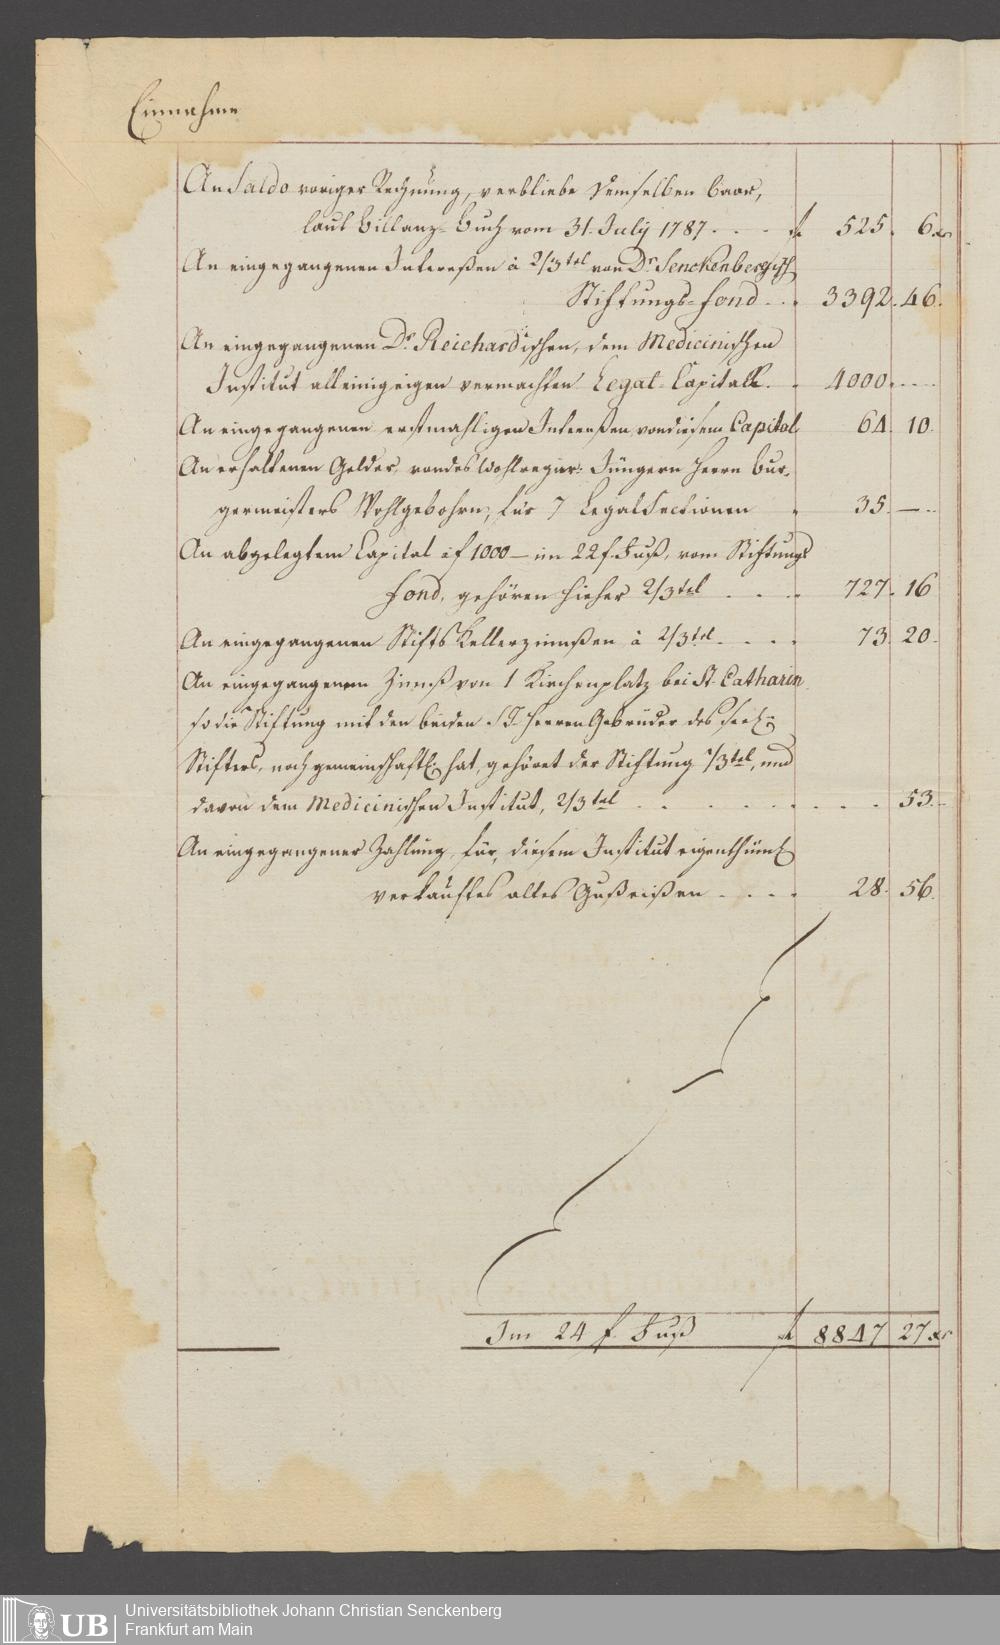 Einnahme
An Saldo voriger Rechnung, verbliebe demselben baar,
laut Billanz-Buch vom 31. July 1787. . . . f 525. 6 xr
An eingegangenen Intereßen à 2/3tel von Dr. Senckenbergisch
Stiftungs-Fond . . . 3392. 46.
An eingegangenen Dr. Reichard'ischen, dem Medicinischen
Institut alleinig eigen vermachten Legat-Capitall. . 4000. . . .
An eingegangenen erstmahligen Intereßen von diesem Capital 64. 10.
An erhaltenen Gelder, von des Wohlregier: Jüngern Herrn Bur-
germeisters Wohlgebohrn, für 7 Legal Sectionen . 35. — . .
An abgelegtem Capital à f 1000 — im 22 f. Fuß, vom Stiftungs
Fond, gehören hieher 2/3tel . . . . 727. 16
An eingegangenen Stifts Kellerzinnßen à 2/3tel . . . . 73. 20.
An eingegangenem Zinnß von 1 Kirchenplatz bei St. Catharin
so die Stiftung mit den beiden S.T. Herren Gebrüder des seel:
Stifters, noch gemeinschaftl: hat, gehöret der Stiftung 1/3tel, und
davon dem Medicinischen Institut, 2/3tel . . . . . . . . 53.
An eingegangener Zahlung, für, diesem Institut eigenthüml
verkauftes altes Gußeißen . . . . 28. 56.
Im 24 f. Fuß f 8847 27 xr
Universitätsbibliothek Johann Christian Senckenberg
UB Frankfurt am Main